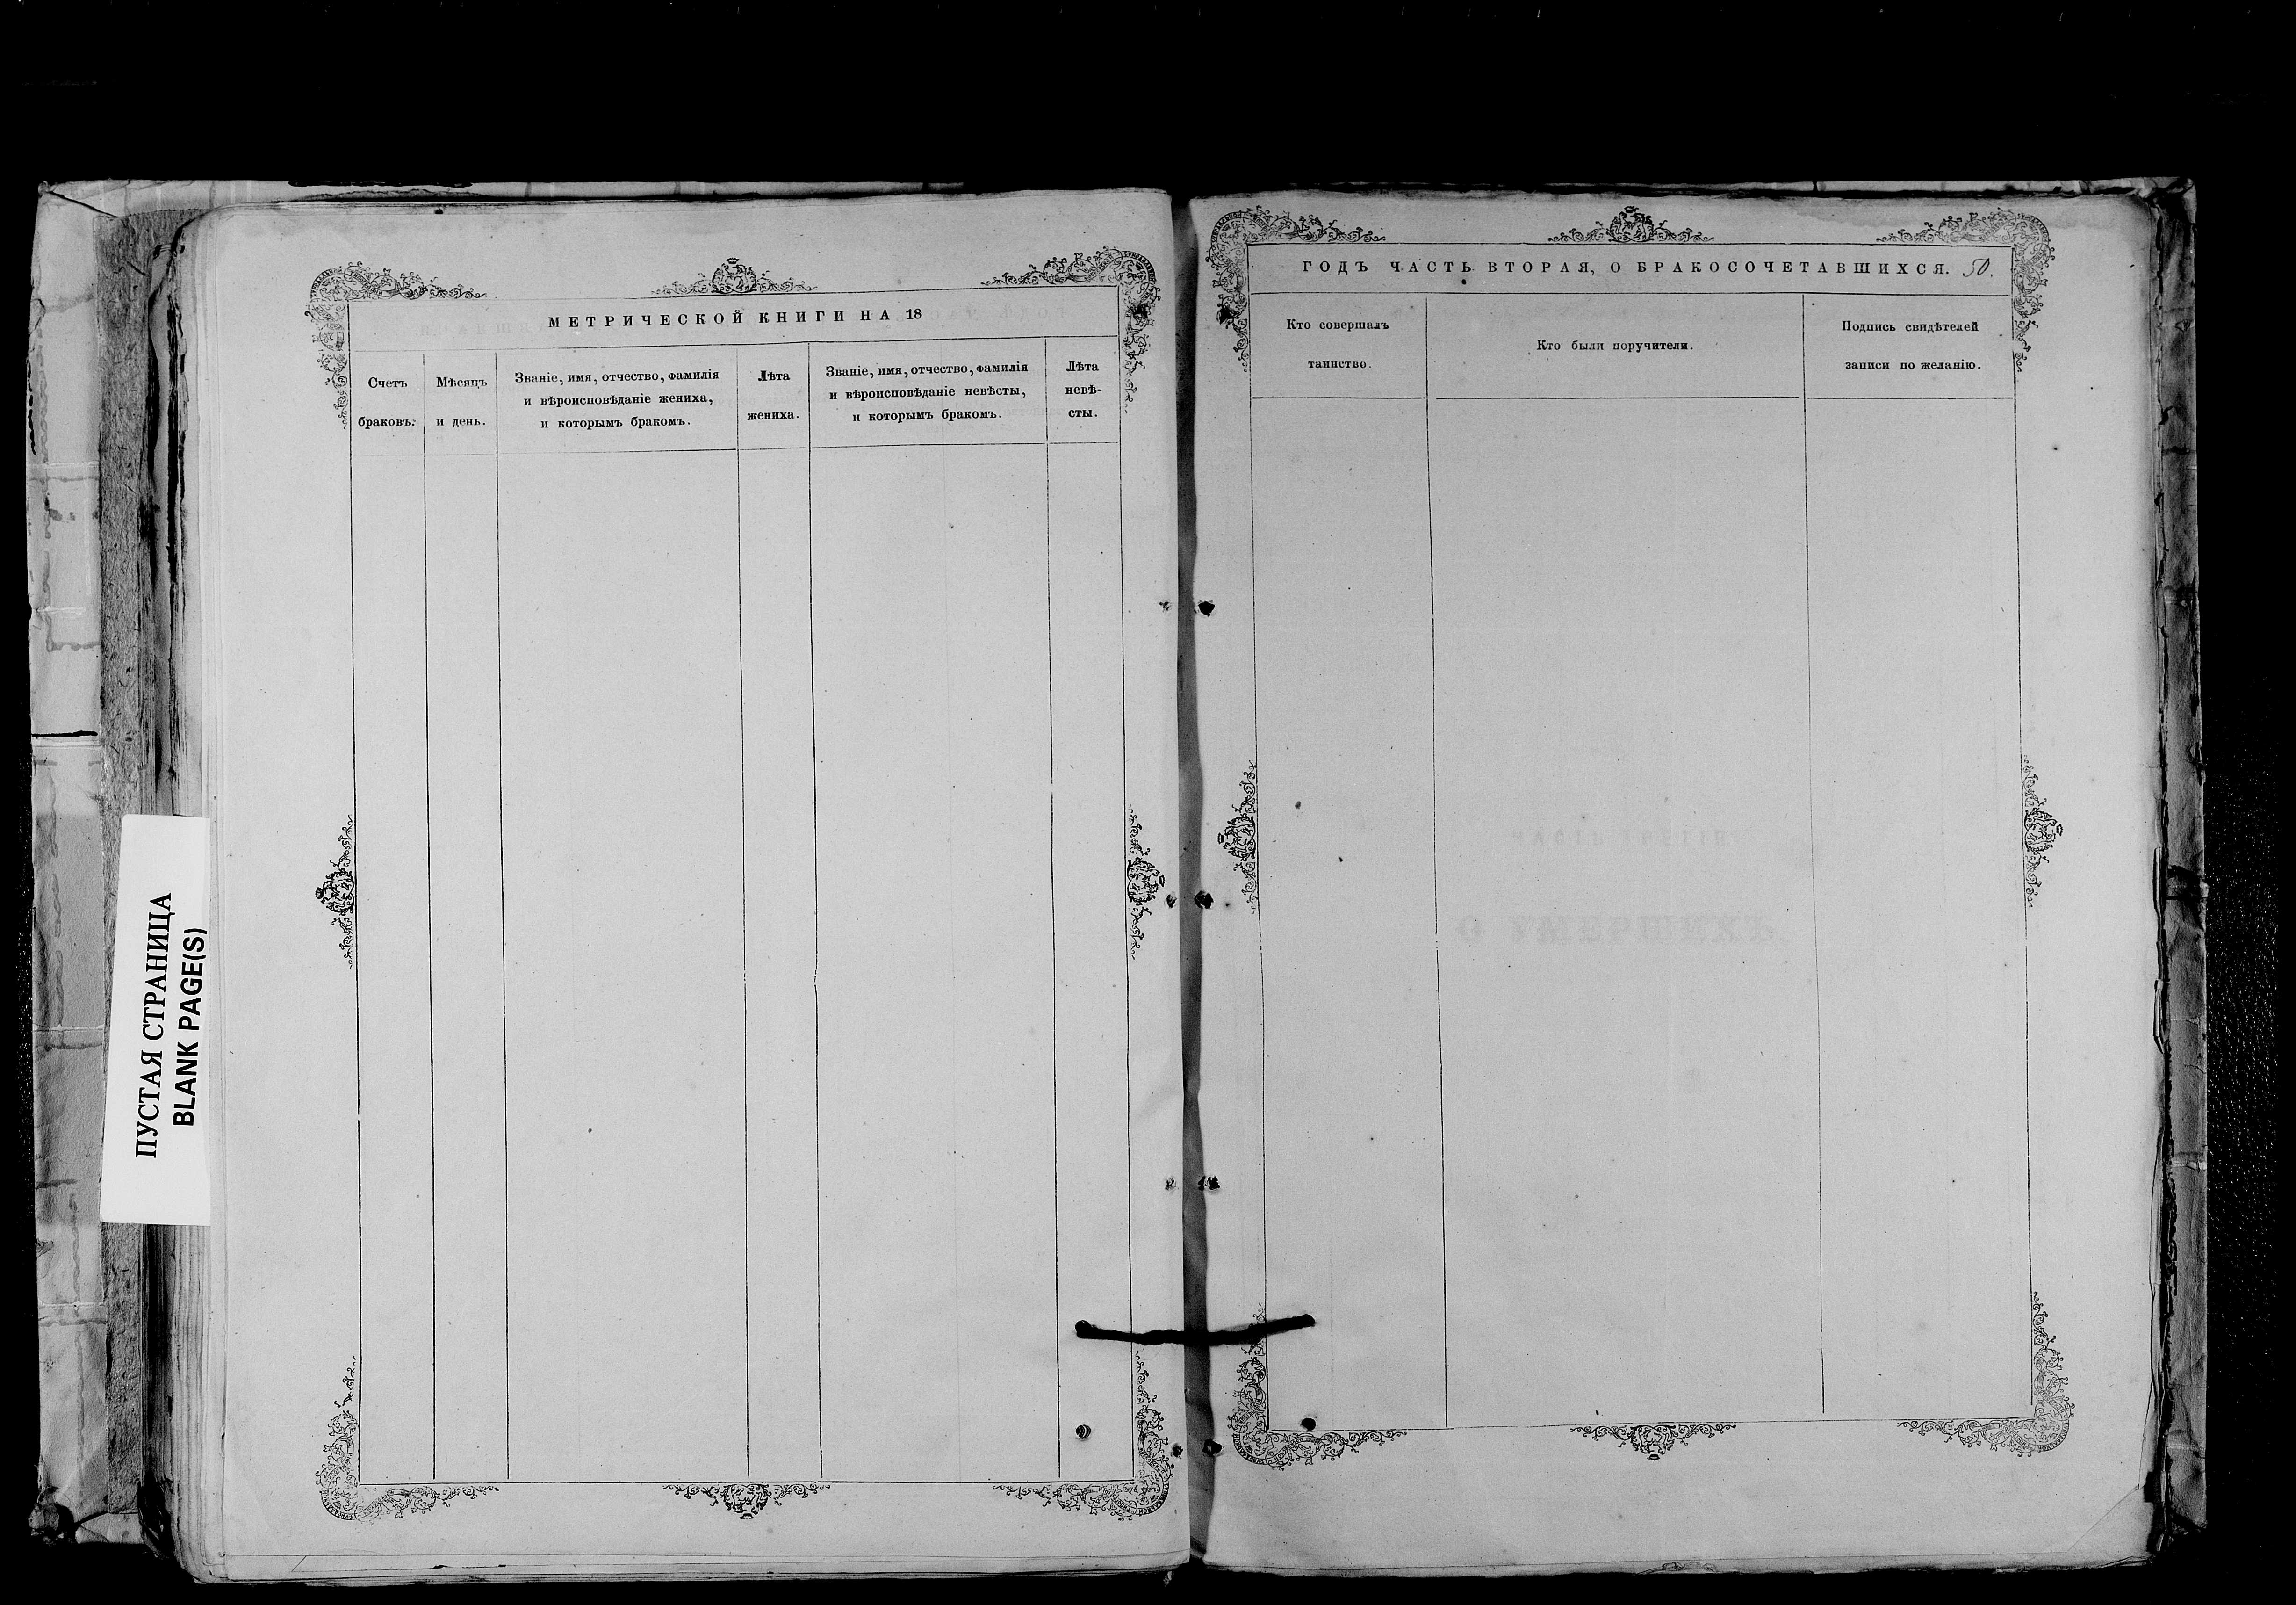 МЕТРИЧЕСКОЙ КНИГИ НА 18
Счетъ
браковъ.
Мѣсяцъ
и день.
Званіе, имя, отчество, фамилія
и вѣроисповѣданіе жениха,
и которымъ бракомъ.
Лѣта
жениха.
Званіе, имя, отчество, фамилія
и вѣроисповѣданіе невѣсты,
и которымъ бракомъ.
Лѣта
невѣ-
сты.
ПУСТАЯ СТРАНИЦА
BLANK PAGE(S)
ГОДЪ ЧАСТЬ ВТОРАЯ, О БРАКОСОЧЕТАВШИХСЯ. 50.
Кто совершалъ
таинство.
Кто были поручители.
Подпись свидѣтелей
записи по желанію.
ЧАСТЬ ТРЕТІЯ
О УМЕРШИХЪ